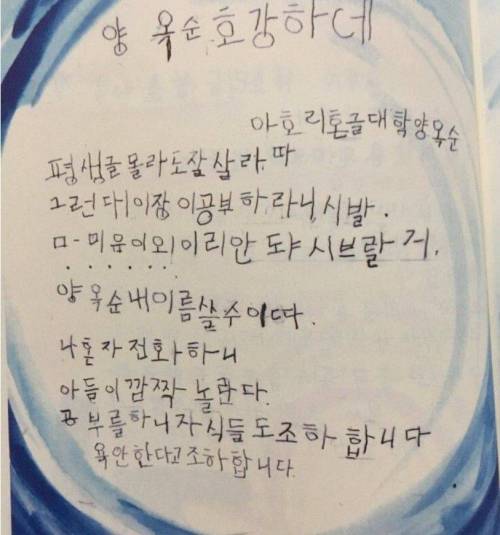 양 옥순 호강하데
아호리혼글대학양옥순
평생글몰라도잘살라따
그런대이장이공부하라니시발.
ㅁ-미음이외이리안 도냐시브랄거.
양옥순내이름쓸수이따.
나혼자전화하니
아들이깜짝놀란다.
공부를하니자식들도조하합니다
욕안한다고조하합니다